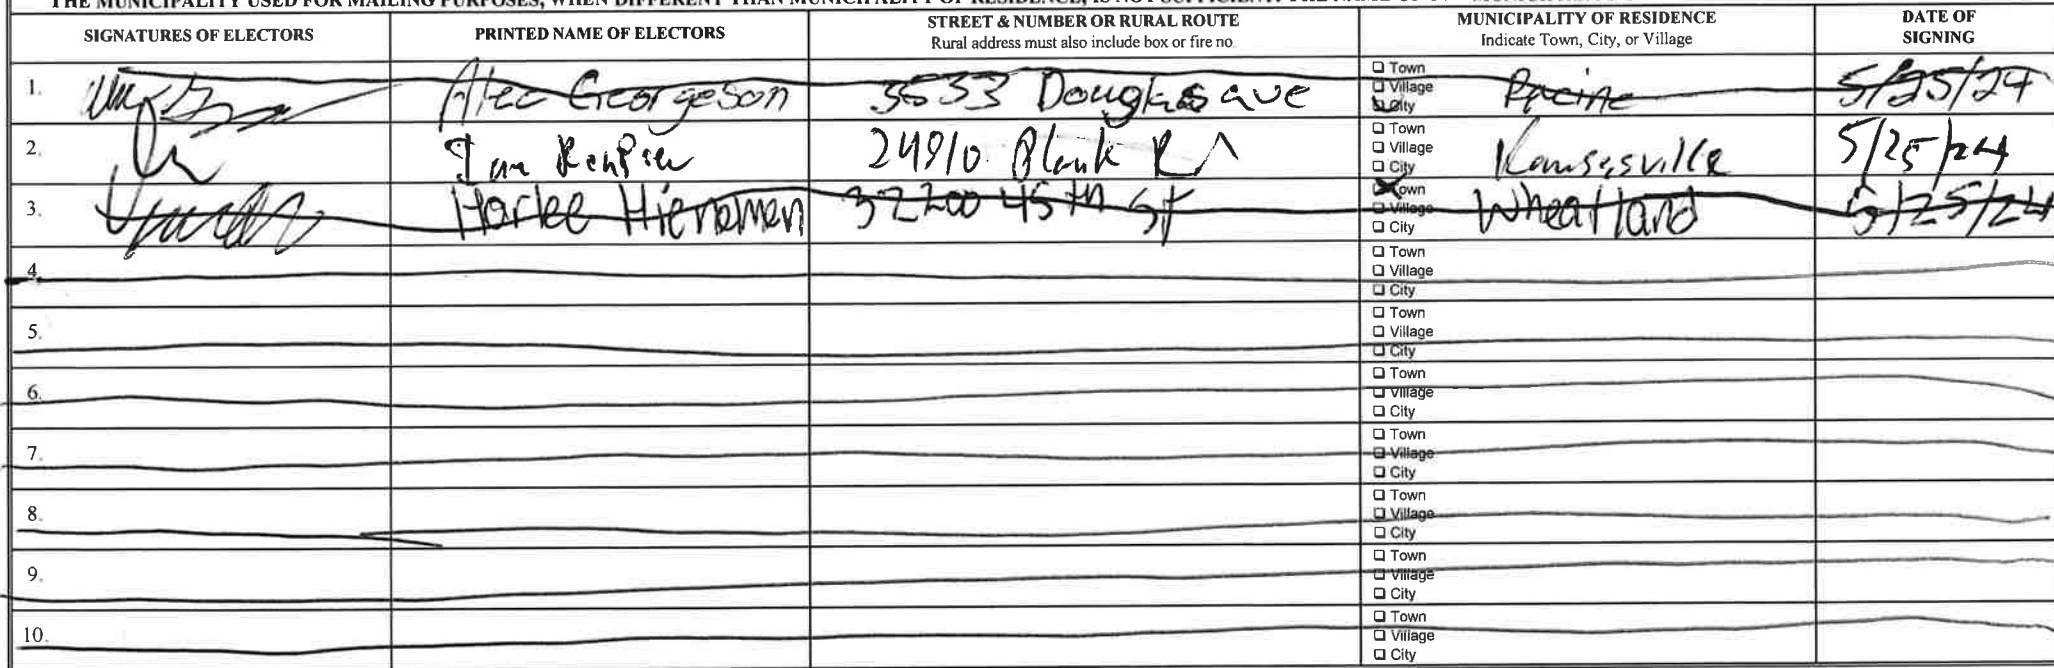 SIGNATURES OF ELECTORS PRINTED NAME OF ELECTORS STREET & NUMBER OR RURAL ROUTE MUNICIPALITY OF RESIDENCE DATE OF SIGNING
Rural address must also include box or fire no. Indicate Town, City, or Village
1. Alec Georgeson 3533 Douglas ave Town Village City Racine 5/25/24
2. 24910 Plank Rd Town Village City Kansasville 5/25/24
3. Harlee Hieneman 32200 45th St Town Village City Wheatland 5/25/24
4. Town Village City
5. Town Village City
6. Town Village City
7. Town Village City
8. Town Village City
9. Town Village City
10. Town Village City